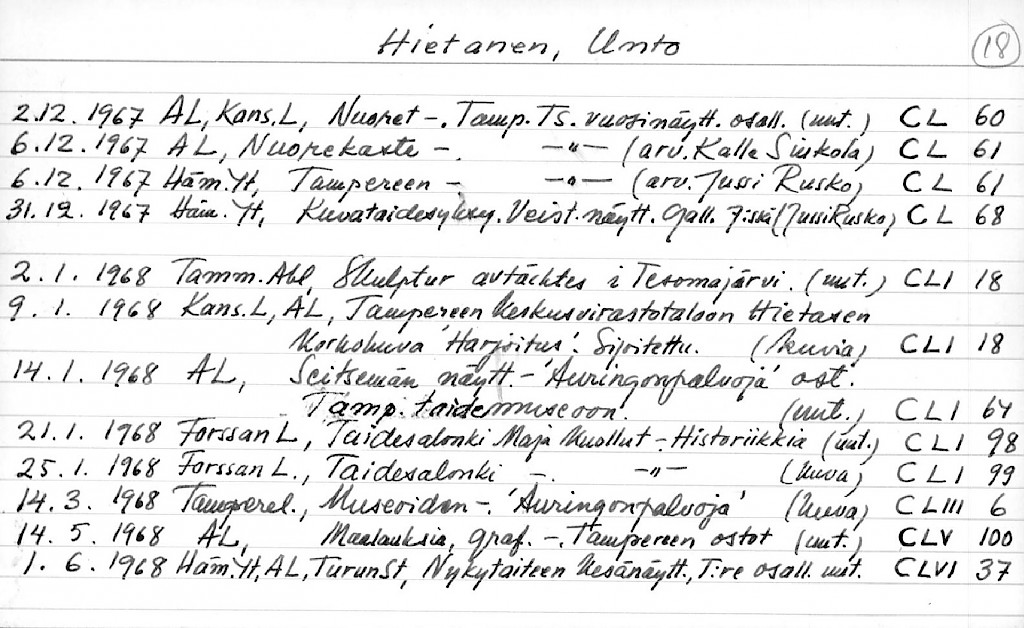 Hietanen, Unto 18
2.12. 1967 AL, Kans.L, Nuoret -. Tamp. TS. vuosinäytt. osall. (uut.) CL 60
6.12. 1967 AL, Nuorekasta -. -"- (arv. Kalle Siukola) CL 61
6.12. 1967 Häm.Yt, Tampereen - -"- (arv. Jussi Rusko) CL 61
31.12. 1967 Häm. Yt, Kuvataidesyksy. Veist. näytt. Gall. 7:ssä (Jussi Rusko) CL 68
2. 1. 1968 Tamm. Abl, Skulptur avtäcktes i Tesomajärvi. (uut.) CLI 18
9. 1. 1968 Kans. L, AL, Tampereen Keskusvirastotaloon Hietasen
Korkokuva 'Harjoitus'. Sijoitettu. (kuvia) CLI 18
14. 1. 1968 AL, Seitsemän näytt. - 'Auringonpalvoja' ost.
Tamp. taidemuseoon. (uut.) CLI 64
21. 1. 1968 Forssan L, Taidesalonki Maja Kuollut - Historiikkia (uut.) CLI 98
25. 1. 1968 Forssan L., Taidesalonki - -"- (kuva) CLI 99
14. 3. 1968 Tamperel., Museoiden -. 'Auringonpalvoja' (kuva) CLIII 6
14. 5. 1968 AL, Maalauksia, graf. -. Tampereen ostot (uut.) CLV 100
1. 6. 1968 Häm.Yt, AL, TurunSt, Nykytaiteen Kesänäytt., T:re osall. uut. CLVI 37